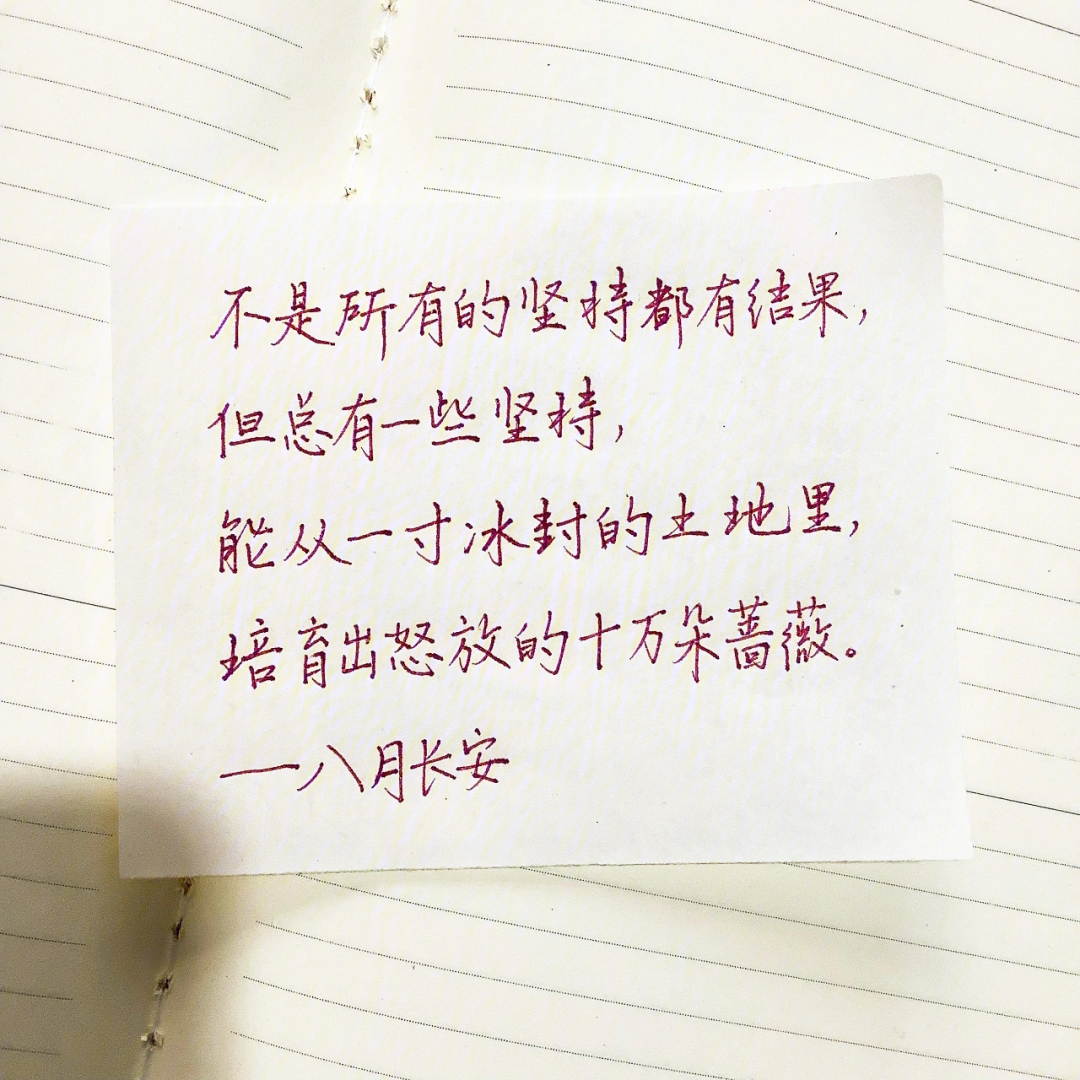 不是所有的坚持都有结果,
但总有一些坚持,
能从一寸冰封的土地里,
培育出怒放的十万朵蔷薇。
——八月长安